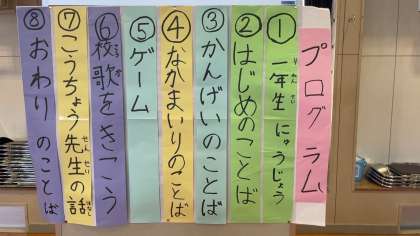 プログラム
① 一年生 にゅうじょう
② はじめのことば
③ かんげいのことば
④ なかまいりのことば
⑤ ゲーム
⑥ 校歌をきこう
⑦ こうちょう先生の話
⑧ おわりのことば